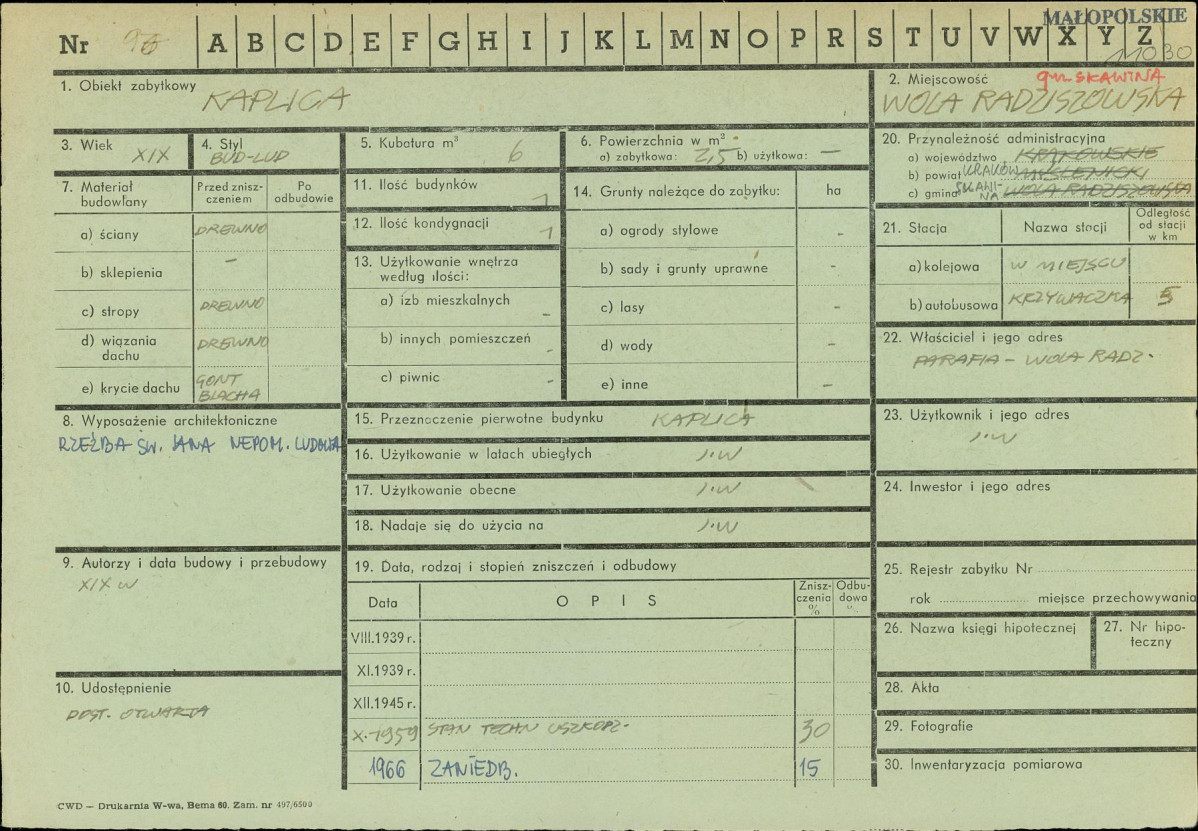 MAŁOPOLSKIE
Nr 96 A B C D E F G H I J K L M N O P R S T U V W X Y Z
11030
1. Obiekt zabytkowy
KAPLICA
2. Miejscowość
gm SKAWINA
WOLA RADZISZOWSKA
3. Wiek
XIX
4. Styl
BUD-LUD
5. Kubatura m³
6
6. Powierzchnia w m²
a) zabytkowa: 2,5 b) użytkowa: —
20. Przynależność administracyjna
a) województwo KRAKOWSKIE
b) powiat KRAKÓW MYŚLENICKI
c) gmina SKAWI-NA WOLA RADZISZOWSKA
7. Materiał budowlany
Przed znisz-czeniem
Po odbudowie
a) ściany DREWNO
b) sklepienia –
c) stropy DREWNO
d) wiązania dachu DREWNO
e) krycie dachu GONT BLACHA
11. Ilość budynków 1
12. Ilość kondygnacji 1
13. Użytkowanie wnętrza według ilości:
a) izb mieszkalnych -
b) innych pomieszczeń -
c) piwnic -
14. Grunty należące do zabytku: ha
a) ogrody stylowe -
b) sady i grunty uprawne -
c) lasy -
d) wody -
e) inne -
21. Stacja
Nazwa stacji
Odległość od stacji w km
a) kolejowa W MIEJSCU
b) autobusowa KRZYWACZKA 5
22. Właściciel i jego adres
PARAFIA - WOLA RADZ.
8. Wyposażenie architektoniczne
RZEŹBA ŚW. JANA NEPOM. LUDOWA
15. Przeznoczenie pierwotne budynku KAPLICA
16. Użytkowanie w latach ubiegłych J.W
17. Użytkowanie obecne J.W
18. Nadaje się do użycia na J.W
23. Użytkownik i jego adres
J.W
24. Inwestor i jego adres
9. Autorzy i data budowy i przebudowy
XIX W
19. Data, rodzaj i stopień zniszczeń i odbudowy
Data
O P I S
Znisz-czenia %
Odbu-dowa %
VIII.1939 r.
XI.1939 r.
XII.1945 r.
X.1959 STAN TECHN USZKODZ. 30
1966 ZANIEDB. 15
25. Rejestr zabytku Nr
rok miejsce przechowywania
26. Nazwa księgi hipotecznej
27. Nr hipo-teczny
10. Udostępnienie
DOST. OTWARTA
28. Akta
29. Fotografie
30. Inwentaryzacja pomiarowa
CWD — Drukarnia W-wa, Bema 60. Zam. nr 497/6500